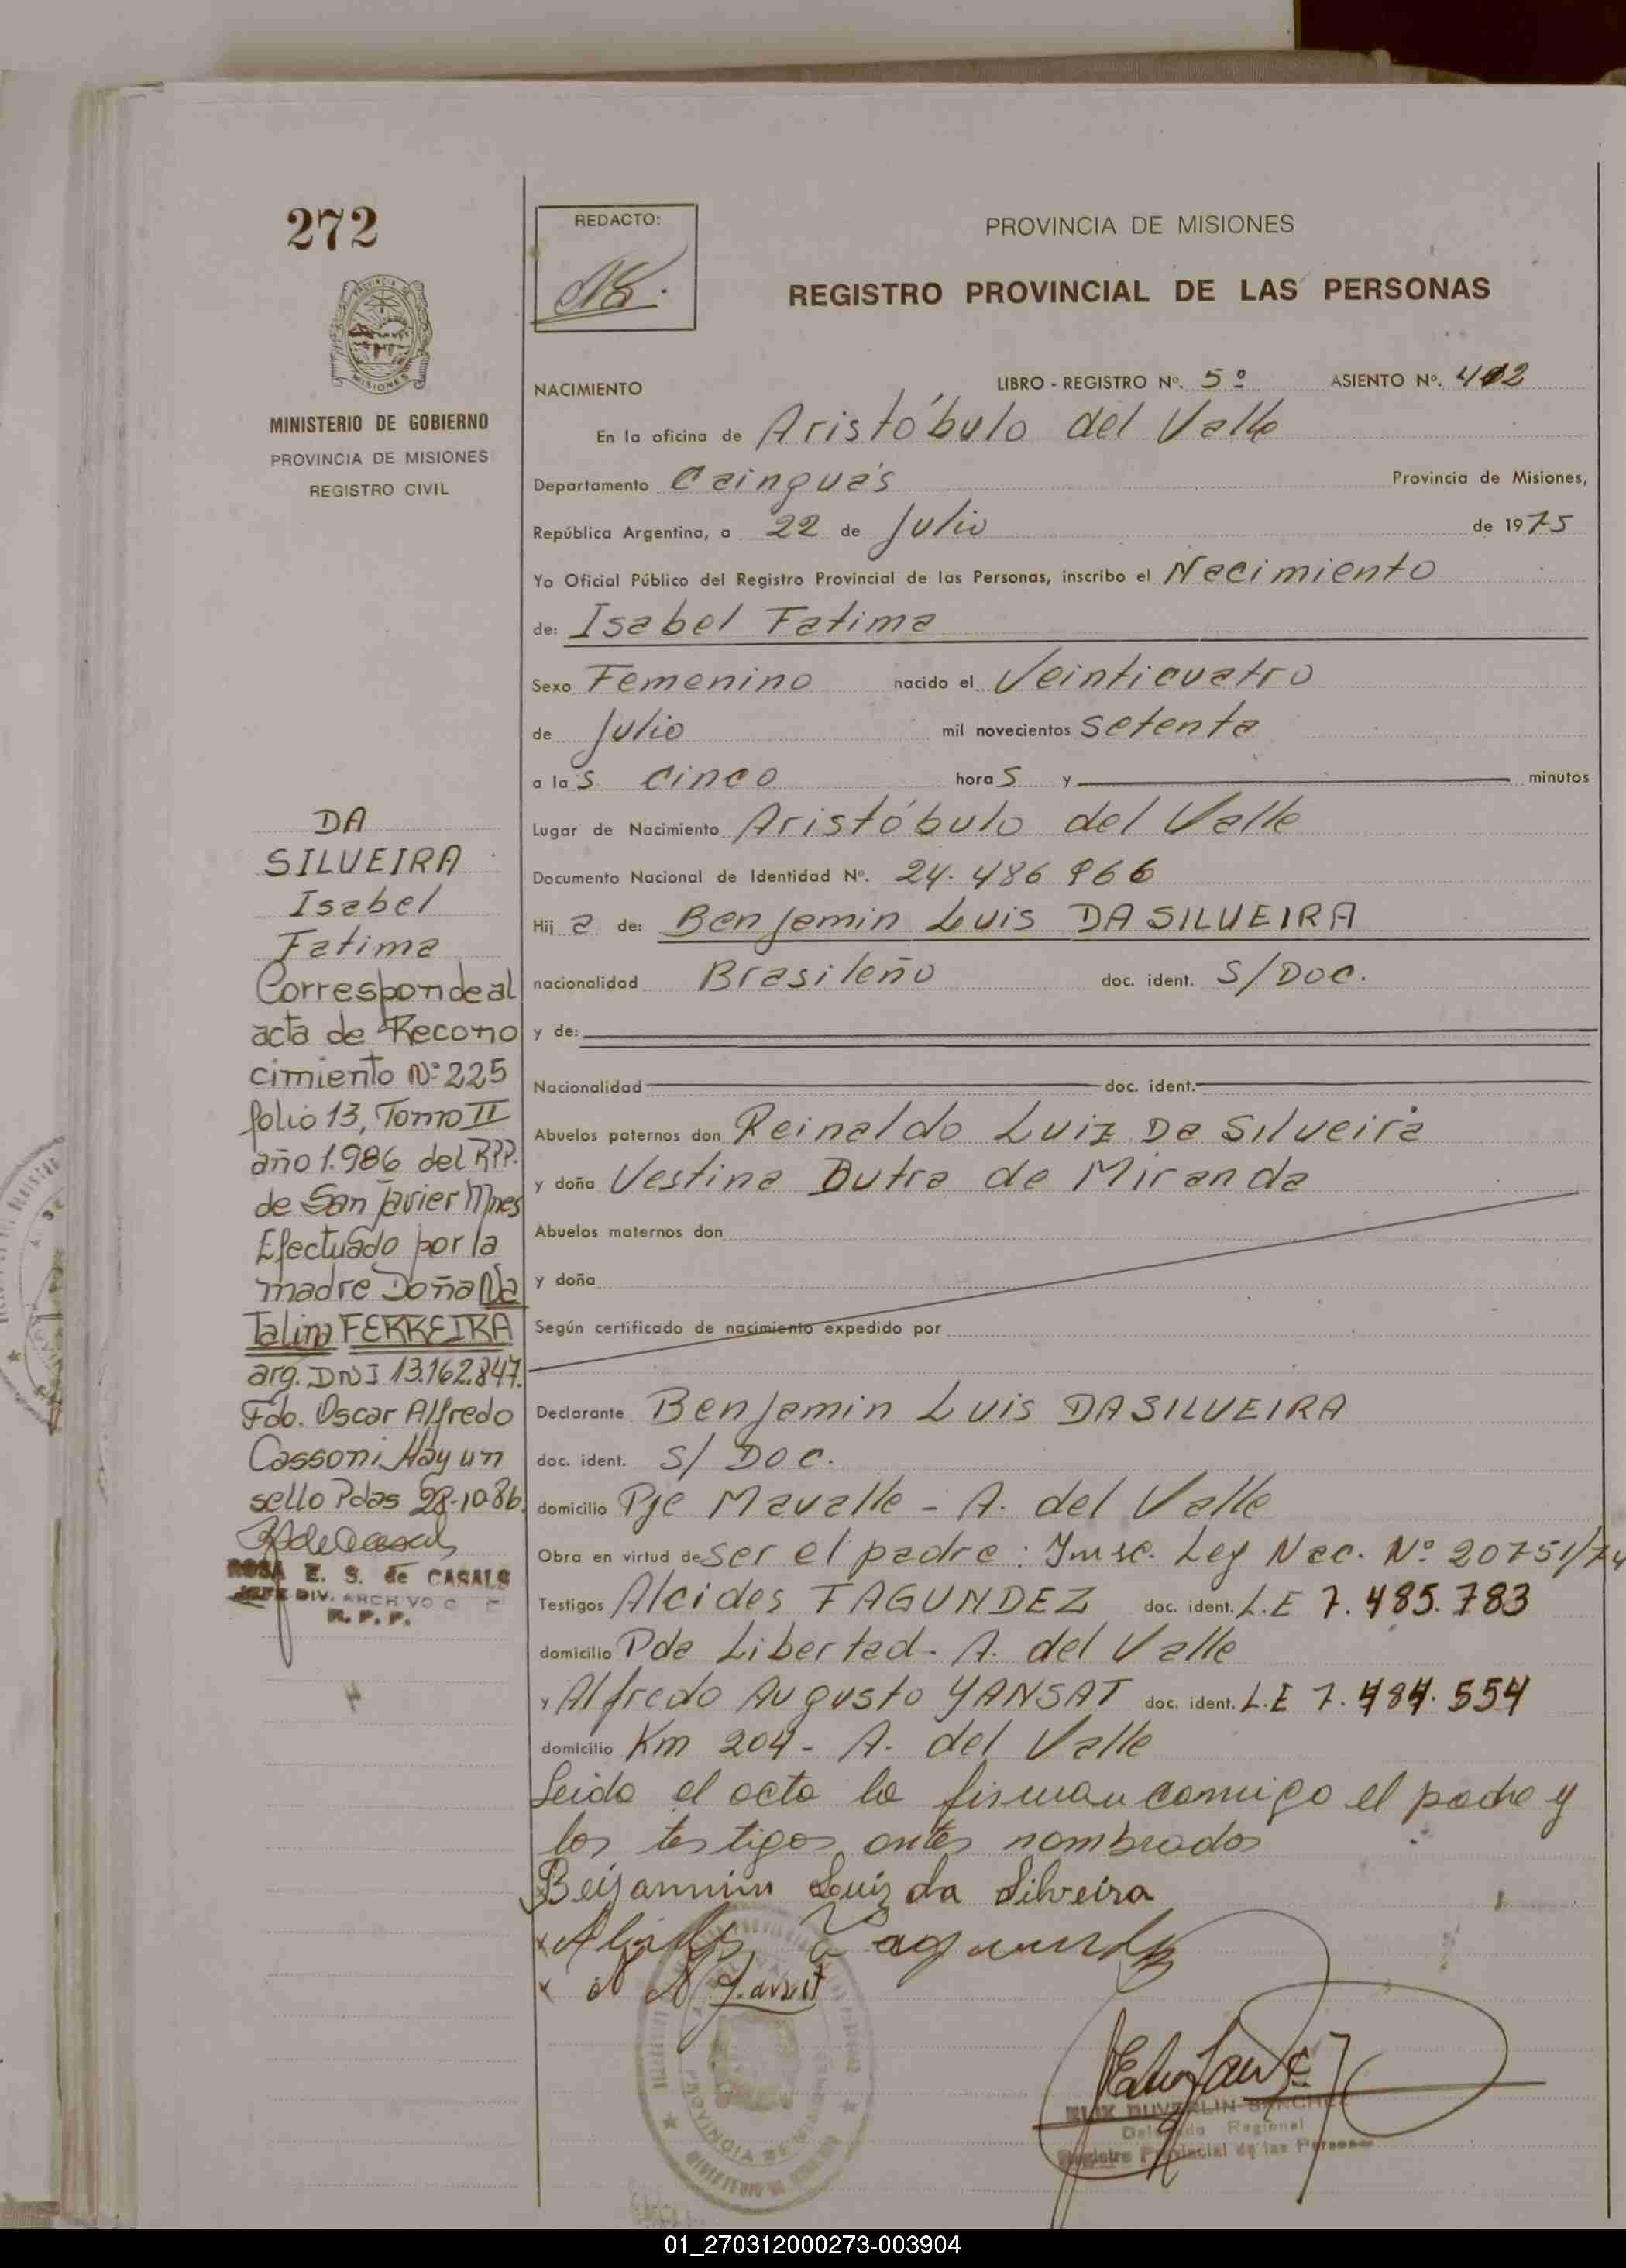 272
REDACTO:
PROVINCIA DE MISIONES
REGISTRO PROVINCIAL DE LAS PERSONAS
MISIONES
MINISTERIO DE GOBIERNO
PROVINCIA DE MISIONES
REGISTRO CIVIL
NACIMIENTO LIBRO - REGISTRO Nº. 5º ASIENTO Nº. 402
En la oficina de Aristóbulo del Valle
Departamento Cainguás Provincia de Misiones,
República Argentina, a 22 de Julio de 1975
Yo Oficial Público del Registro Provincial de las Personas, inscribo el Nacimiento
de: Isabel Fatima
Sexo Femenino nacido el Veinticuatro
de Julio mil novecientos setenta
a las cinco horas y minutos
Lugar de Nacimiento Aristóbulo del Valle
Documento Nacional de Identidad Nº. 24.486 966
Hija de: Benjamin Luis DA SILVEIRA
nacionalidad Brasileño doc. ident. S/Doc.
y de:
Nacionalidad doc. ident.
Abuelos paternos don Reinaldo Luiz Da Silveira
y doña Vestina Dutra de Miranda
Abuelos maternos don
y doña
Según certificado de nacimiento expedido por
Declarante Benjamin Luis DA SILVEIRA
doc. ident. S/ Doc.
domicilio Pje Mavalle - A. del Valle
Obra en virtud de ser el padre: Insc. Ley Nac. Nº 20751/74
Testigos Alcides FAGUNDEZ doc. ident. L.E 7.485.783
domicilio Pda Libertad - A. del Valle
y Alfredo Augusto YANSAT doc. ident. L.E 7.484.554
domicilio Km 204 - A. del Valle
Leida el acta la firman conmigo el padre y
los testigos antes nombrados
Beijammin Luiz da Silveira
DA
SILVEIRA
Isabel
Fatima
Corresponde al
acta de Recono
cimiento Nº 225
folio 13, Tomo II
año 1.986 del RPP.
de San Javier Mnes
Efectuado por la
madre Doña Na
Talina FERREIRA
arg. DNI 13.162.847.
Fdo. Oscar Alfredo
Cassoni. Hay un
sello Pdas 28-10-86.
ROSA E. S. de CASALS
JEFE DIV. ARCHIVO
R. P. P.
SANCHEZ
Delegado Regional
Registro Provincial de las Personas
01_270312000273-003904